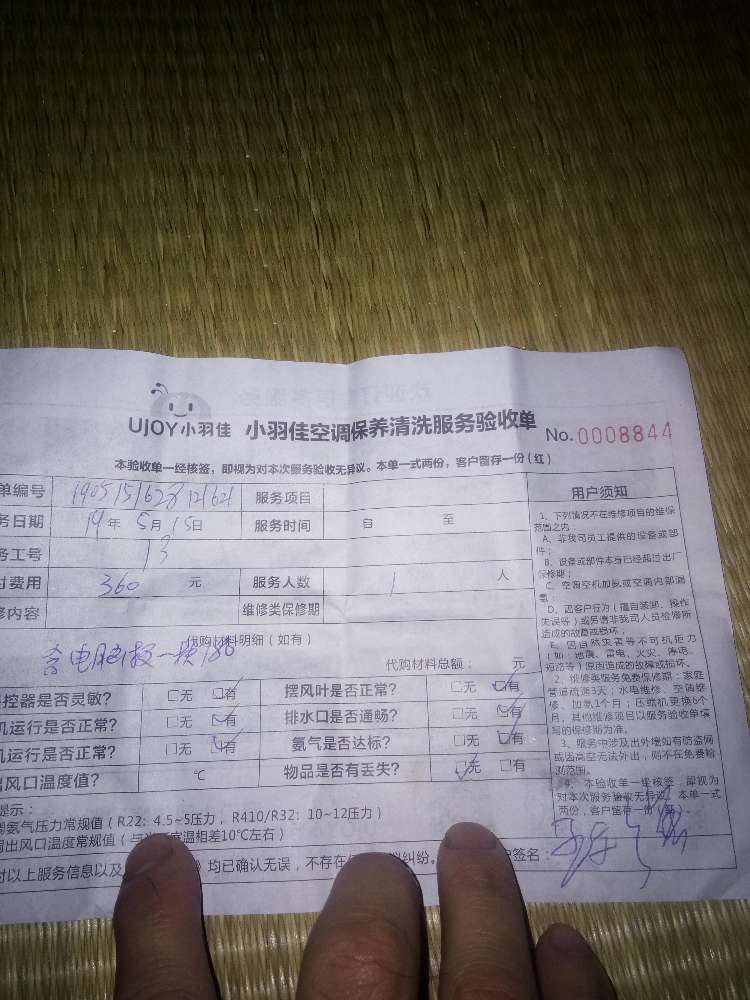 UJOY小羽佳 小羽佳空调保养清洗服务验收单 No.0008844
本验收单一经核签，即视为对本次服务验收无异议。本单一式两份，客户留存一份（红）
单编号 服务项目
务日期 19年5月15日 服务时间 自 至
务工号 13
付费用 360 元 服务人数 1 人
修内容 维修类保修期
代购材料明细（如有）
电脑板一块180
代购材料总额： 元
控器是否灵敏？ 无 有 摆风叶是否正常？ 无 有
机运行是否正常？ 无 有 排水口是否通畅？ 无 有
机运行是否正常？ 无 有 氨气是否达标？ 无 有
出风口温度值？ ℃ 物品是否有丢失？ 无 有
提示：
氨气压力常规值（R22: 4.5~5压力，R410/R32: 10~12压力）
出风口温度常规值（与 室温相差10℃左右）
对以上服务信息以及 》均已确认无误，不存在 纠纷。 签名：
用户须知
1、下列情况不在维修项目的维保
范围之内：
A、非我司员工提供的设备或部
件；
B、设备或部件本身已经超过出厂
保修期；
C、空调空机加氨或空调内部漏
氨；
D、因客户行为（擅自装卸、操作
失误等）或另请非我司人员检修所
造成的故障或损坏；
E、因自然灾害等不可抗拒力
（如：地震、雷电、火灾、停电、
短路等）原因造成的故障或损坏。
2、维修类服务免费保修期：家庭
管道疏通3天；水电维修、空调维
修、加氨1个月；压缩机更换6个
月，其他维修项目以服务验收单填
写的保修期为准。
3、服务中涉及出外墙如有防盗网
或因高空无法外出，则不在免费检
测范围。
4、本验收单一经核签，即视为
对本次服务验收无异议。本单一式
两份，客户留存一份（红）